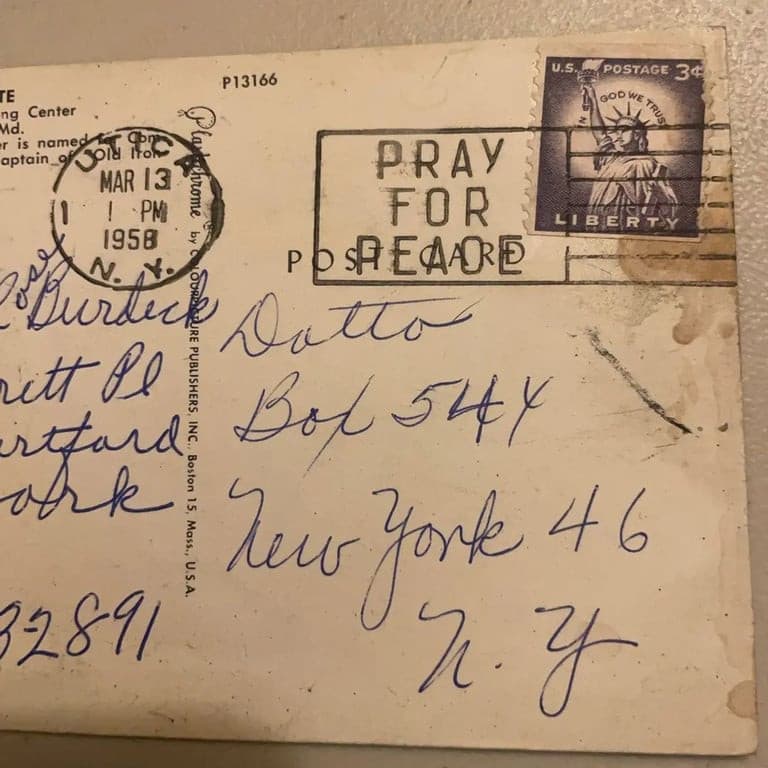 TE
ng Center
Md.
er is named for Com
aptain of Old Iron
P13166
UTICA
MAR 13
1 PM
1958
N. Y.
PRAY
FOR
PEACE
U.S. POSTAGE 3¢
IN GOD WE TRUST
LIBERTY
POST CARD
Plastichrome ® by COLOURPICTURE PUBLISHERS, INC., Boston 15, Mass., U.S.A.
Rose Burdick
rett Pl
rtford
ork
32891
Dotto
Box 544
New York 46
N. Y